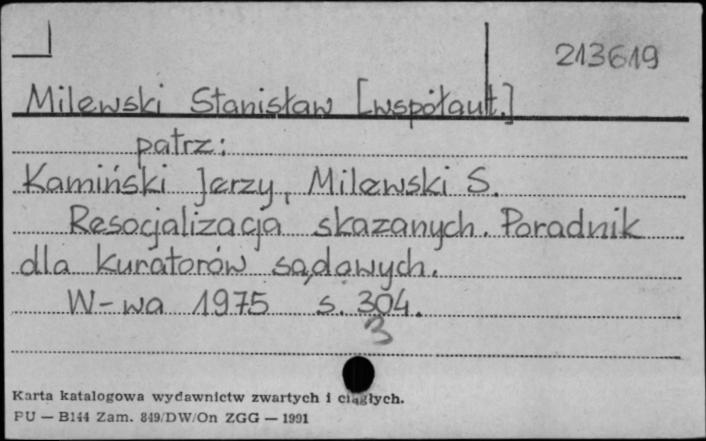 213619
Milewski Stanisław [współaut.]
patrz:
Kamiński Jerzy, Milewski S.
Resocjalizacja skazanych. Poradnik
dla kuratorów sądowych.
W-wa 1975 s. 304.
3
Karta katalogowa wydawnictw zwartych i ciągłych.
PU — B144 Zam. 849/DW/On ZGG — 1991